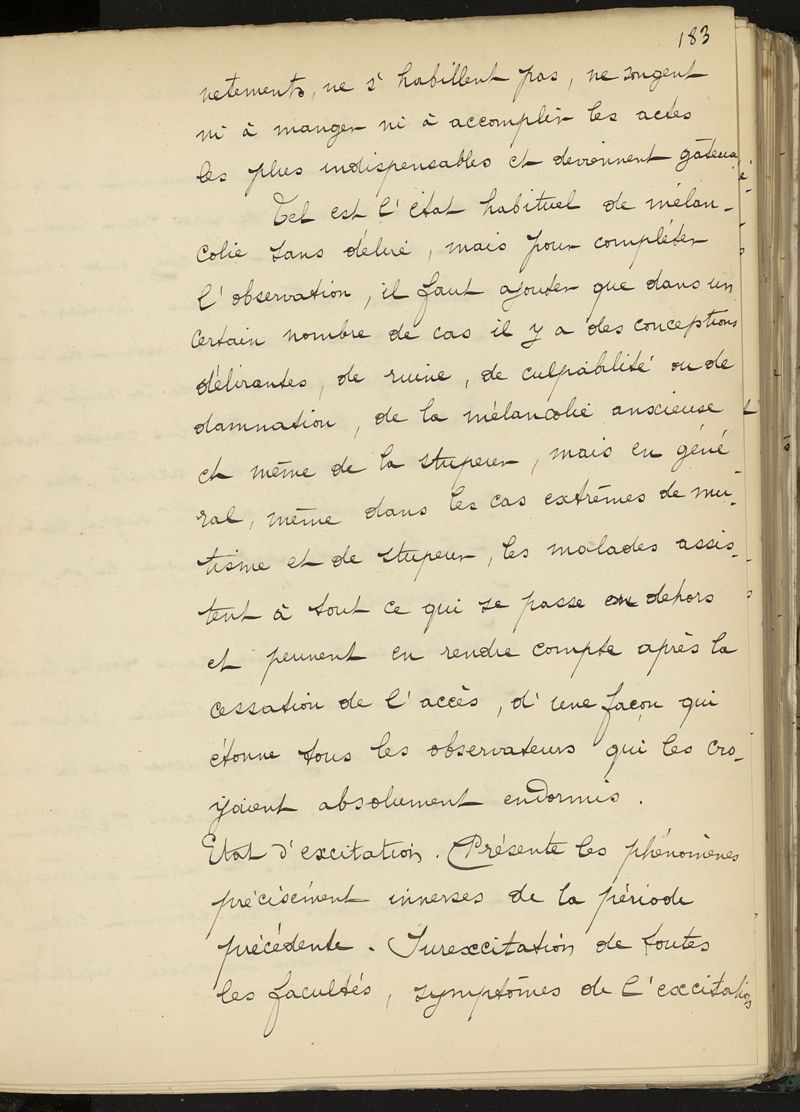 183
vetements, ne s'habillent pas, ne songent
ni à manger ni à accomplir les actes
les plus indispensables et deviennent gâteux
Tel est l'état habituel de mélan-
colie sans délire, mais pour compléter
l'observation, il faut ajouter que dans un
certain nombre de cas il y a des conceptions
délirantes, de ruine, de culpabilité ou de
damnation, de la mélancolie anxieuse
et même de la stupeur, mais en géné
ral, même dans les cas extrêmes de mu-
tisme et de stupeur, les malades assis-
tent à tout ce qui se passe en dehors
et peuvent en rendre compte après la
cessation de l'accès, d'une façon qui
étonne tous les observateurs qui les cro-
yaient absolument endormis.
Etat d'excitation. Présente les phénomènes
précisément inverses de la période
précédente. Surexcitation de toutes
les facultés, symptômes de l'excitation